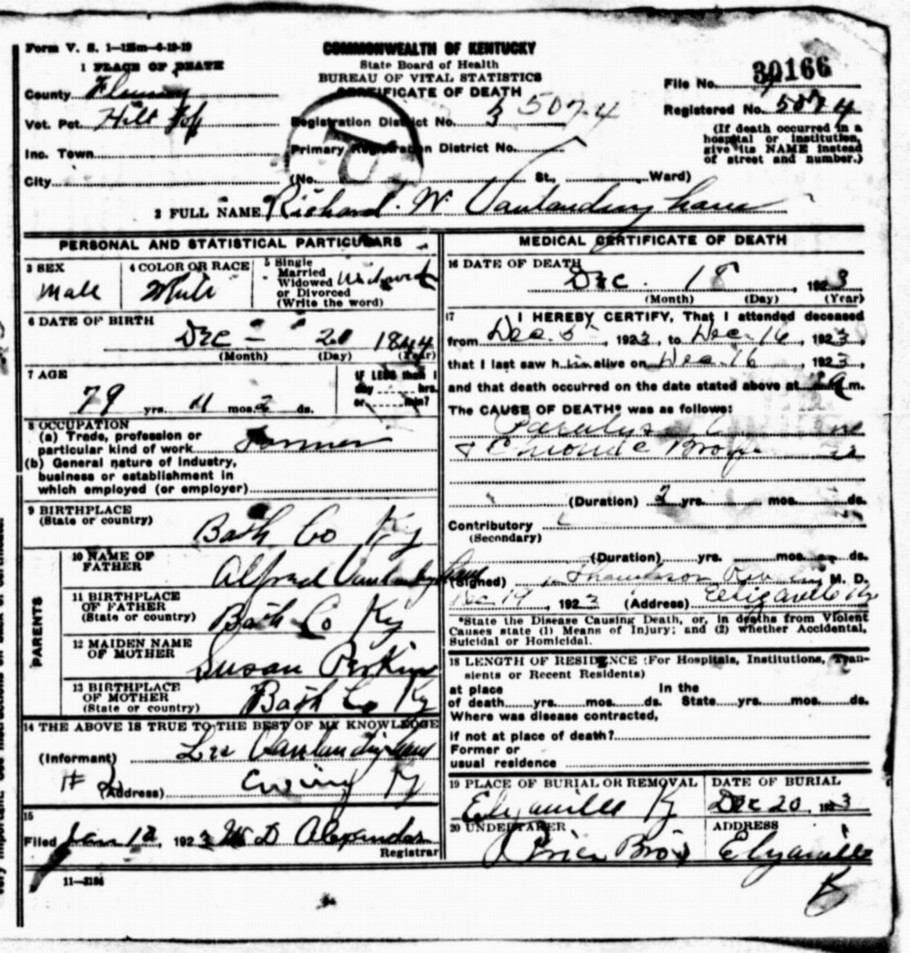 Form V. S. 1—125m—6-19-19
COMMONWEALTH OF KENTUCKY
State Board of Health
BUREAU OF VITAL STATISTICS
CERTIFICATE OF DEATH
1 PLACE OF DEATH
County Fleming
Vot. Pct. Hilltop
Inc. Town
City
Registration District No. 5074
Primary Registration District No.
(No. St., Ward)
File No. 30166
Registered No. 5074
(If death occurred in a
hospital or institution,
give its NAME instead
of street and number.)
2 FULL NAME Richard W Vanlandingham
PERSONAL AND STATISTICAL PARTICULARS
3 SEX
Male
4 COLOR OR RACE
White
5 Single
Married
Widowed
or Divorced
(Write the word)
Widowed
6 DATE OF BIRTH
Dec - 20 1844
(Month) (Day) (Year)
7 AGE
79 yrs. 11 mos. ds.
IF LESS than 1
day hrs.
or min?
8 OCCUPATION
(a) Trade, profession or
particular kind of work Farmer
(b) General nature of industry,
business or establishment in
which employed (or employer)
9 BIRTHPLACE
(State or country)
Bath Co Ky
PARENTS
10 NAME OF
FATHER
Alfred Vanlandingham
11 BIRTHPLACE
OF FATHER
(State or country)
Bath Co Ky
12 MAIDEN NAME
OF MOTHER
Susan Perkins
13 BIRTHPLACE
OF MOTHER
(State or country)
Bath Co Ky
14 THE ABOVE IS TRUE TO THE BEST OF MY KNOWLEDGE
(Informant) Lee Vanlandingham
(Address) Ewing Ky
15
Filed Jan 12, 1923 W D Alexander
Registrar
11—3184
MEDICAL CERTIFICATE OF DEATH
16 DATE OF DEATH
Dec. 18, 1923
(Month) (Day) (Year)
17 I HEREBY CERTIFY, That I attended deceased
from Dec. 5, 1923, to Dec. 16, 1923,
that I last saw him alive on Dec. 16, 1923,
and that death occurred on the date stated above at m.
The CAUSE OF DEATH* was as follows:
& Chronic
(Duration) 2 yrs. mos. ds.
Contributory
(Secondary)
(Duration) yrs. mos. ds.
(Signed) M. D.
Dec 19, 1923 (Address) Elizaville Ky
*State the Disease Causing Death, or, in deaths from Violent
Causes state (1) Means of Injury; and (2) whether Accidental,
Suicidal or Homicidal.
18 LENGTH OF RESIDENCE (For Hospitals, Institutions, Tran-
sients or Recent Residents)
at place In the
of death yrs. mos. ds. State yrs. mos. ds.
Where was disease contracted,
if not at place of death?
Former or
usual residence
19 PLACE OF BURIAL OR REMOVAL
Elizaville Ky
DATE OF BURIAL
Dec 20 1923
20 UNDERTAKER
Price Bros
ADDRESS
Elizaville